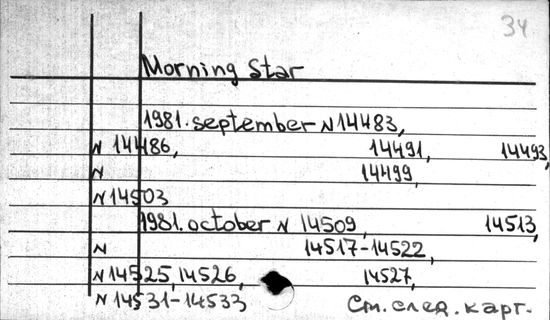 34
Morning Star
1981. september N14483,
N 14486, 14491, 14493,
N 14499,
N14503
1981. october N 14509, 14513,
N 14517-14522,
N14525, 14526, 14527,
N 14531-14533 См. след. карт.